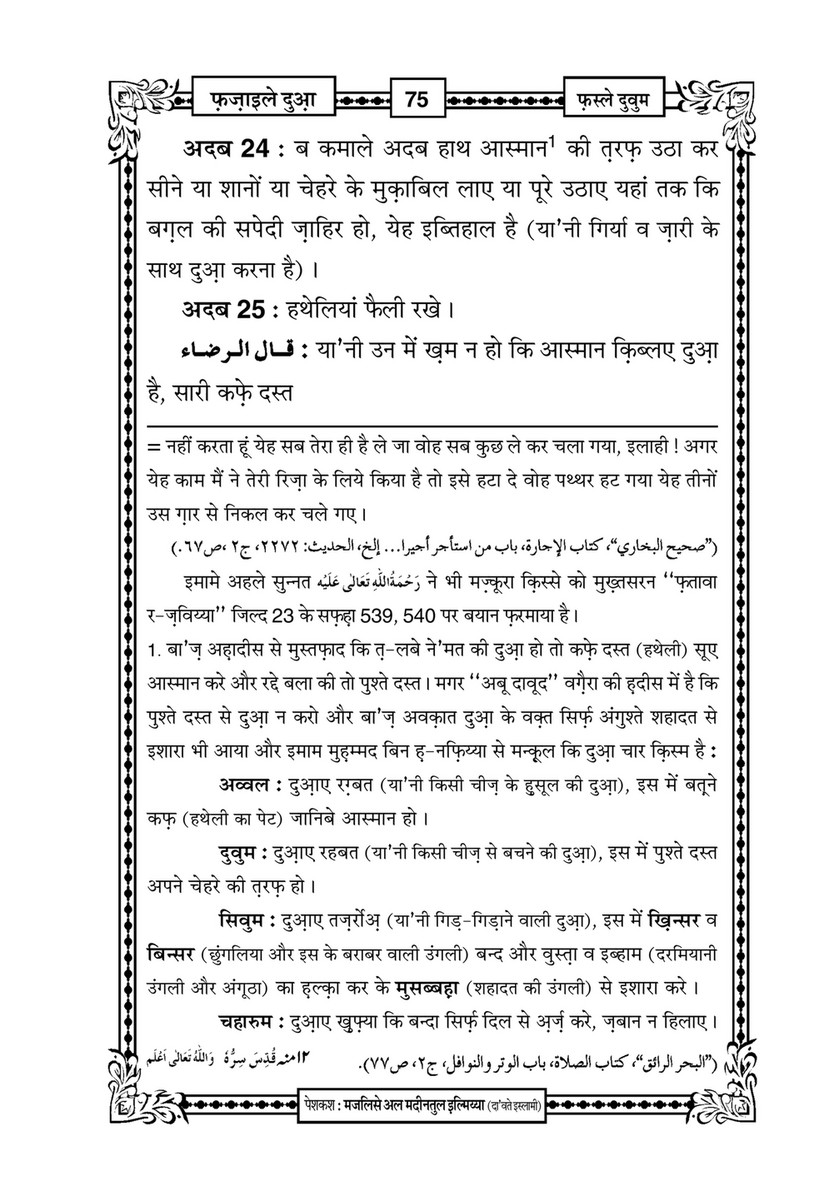 फ़ज़ाइले दुआ़
75
फ़स्ले दुवुम
अदब 24 : ब कमाले अदब हाथ आस्मान¹ की त़रफ़ उठा कर
सीने या शानों या चेहरे के मुक़ाबिल लाए या पूरे उठाए यहां तक कि
बग़ल की सपेदी ज़ाहिर हो, येह इब्तिहाल है (या'नी गिर्या व ज़ारी के
साथ दुआ़ करना है) ।
अदब 25 : हथेलियां फैली रखे ।
قــال الـرضــاء : या'नी उन में ख़म न हो कि आस्मान क़िब्लए दुआ़
है, सारी कफ़े दस्त
= नहीं करता हूं येह सब तेरा ही है ले जा वोह सब कुछ ले कर चला गया, इलाही ! अगर
येह काम मैं ने तेरी रिज़ा के लिये किया है तो इसे हटा दे वोह पथ्थर हट गया येह तीनों
उस ग़ार से निकल कर चले गए ।
("صحيح البخاري"، كتاب الإجارة، باب من استأجر أجيرا... إلخ، الحديث: ٢٢٧٢، ج٢، ص٦٧.)
इमामे अहले सुन्नत رَحْمَةُاللّٰهِ تَعَالٰى عَلَيْه ने भी मज़्कूरा क़िस्से को मुख़्तसरन ‘‘फ़तावा
र-ज़विय्या’’ जिल्द 23 के सफ़्ह़ा 539, 540 पर बयान फ़रमाया है ।
1. बा'ज़ अह़ादीस से मुस्तफ़ाद कि त़-लबे ने'मत की दुआ़ हो तो कफ़े दस्त (हथेली) सूए
आस्मान करे और रद्दे बला की तो पुश्ते दस्त । मगर ‘‘अबू दावूद’’ वग़ैरा की ह़दीस में है कि
पुश्ते दस्त से दुआ़ न करो और बा'ज़ अवक़ात दुआ़ के वक़्त सिर्फ़ अंगुश्ते शहादत से
इशारा भी आया और इमाम मुह़म्मद बिन ह़-नफ़िय्या से मन्क़ूल कि दुआ़ चार क़िस्म है :
अव्वल : दुआ़ए रग़्बत (या'नी किसी चीज़ के हु़सूल की दुआ़), इस में बत़्ने
कफ़ (हथेली का पेट) जानिबे आस्मान हो ।
दुवुम : दुआ़ए रहबत (या'नी किसी चीज़ से बचने की दुआ़), इस में पुश्ते दस्त
अपने चेहरे की त़रफ़ हो ।
सिवुम : दुआ़ए तज़र्रोअ़ (या'नी गिड़-गिड़ाने वाली दुआ़), इस में ख़िन्सर व
बिन्सर (छुंगलिया और इस के बराबर वाली उंगली) बन्द और वुस्त़ा व इब्हाम (दरमियानी
उंगली और अंगूठा) का ह़ल्क़ा कर के मुसब्बह़ा (शहादत की उंगली) से इशारा करे ।
चहारुम : दुआ़ए ख़ुफ़्या कि बन्दा सिर्फ़ दिल से अ़र्ज़ करे, ज़बान न हिलाए ।
("البحر الرائق"، كتاب الصلاة، باب الوتر والنوافل، ج٢، ص٧٧). ١٢منه قُدِّسَ سِرُّهٗ وَاللّٰهُ تَعَالٰى اَعْلَم
पेशकश : मजलिसे अल मदीनतुल इ़ल्मिय्या (दा'वते इस्लामी)